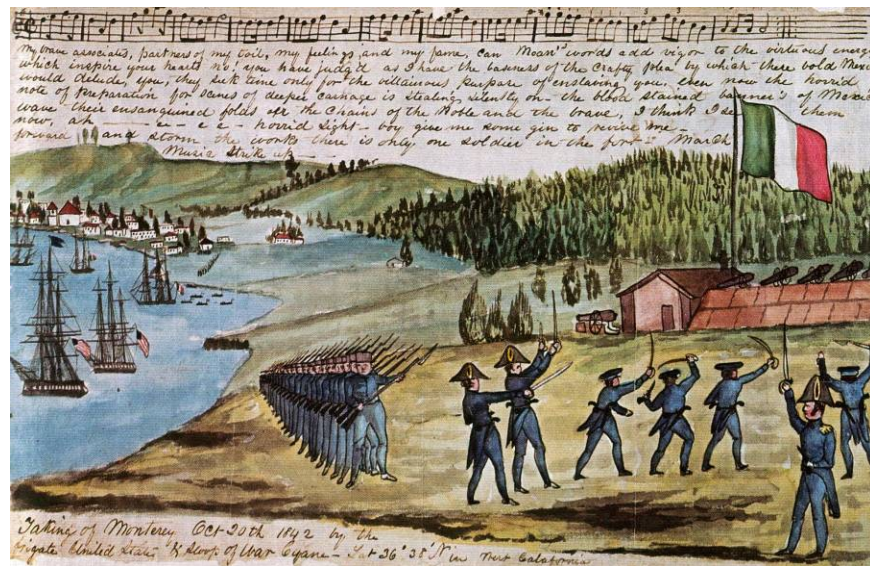 My brave associates, partners of my toil, my feelings, and my fame, can Mean words add vigor to the virtuous energy
which inspire your hearts no! you have judg'd as I have the baseness of the crafty plea by which these bold Mexi
would delude, you, they seek time only for the villainous purpose of enslaving you, even now the horrid
note of preparation for scenes of deeper carnage is stealing silently on - the blood stained banner's of Mexico
wave their ensanguined folds o'er the chains of the Noble and the brave, I think I see them
now, ah horrid sight - boy give me some gin to revive me -
forward and storm the works there is only one soldier in the fort - March
Music Strike up
Taking of Monterey Oct 20th 1842 by the
frigate United States & Sloop of War Cyane - Lat 36° 38' N in West Calafornia